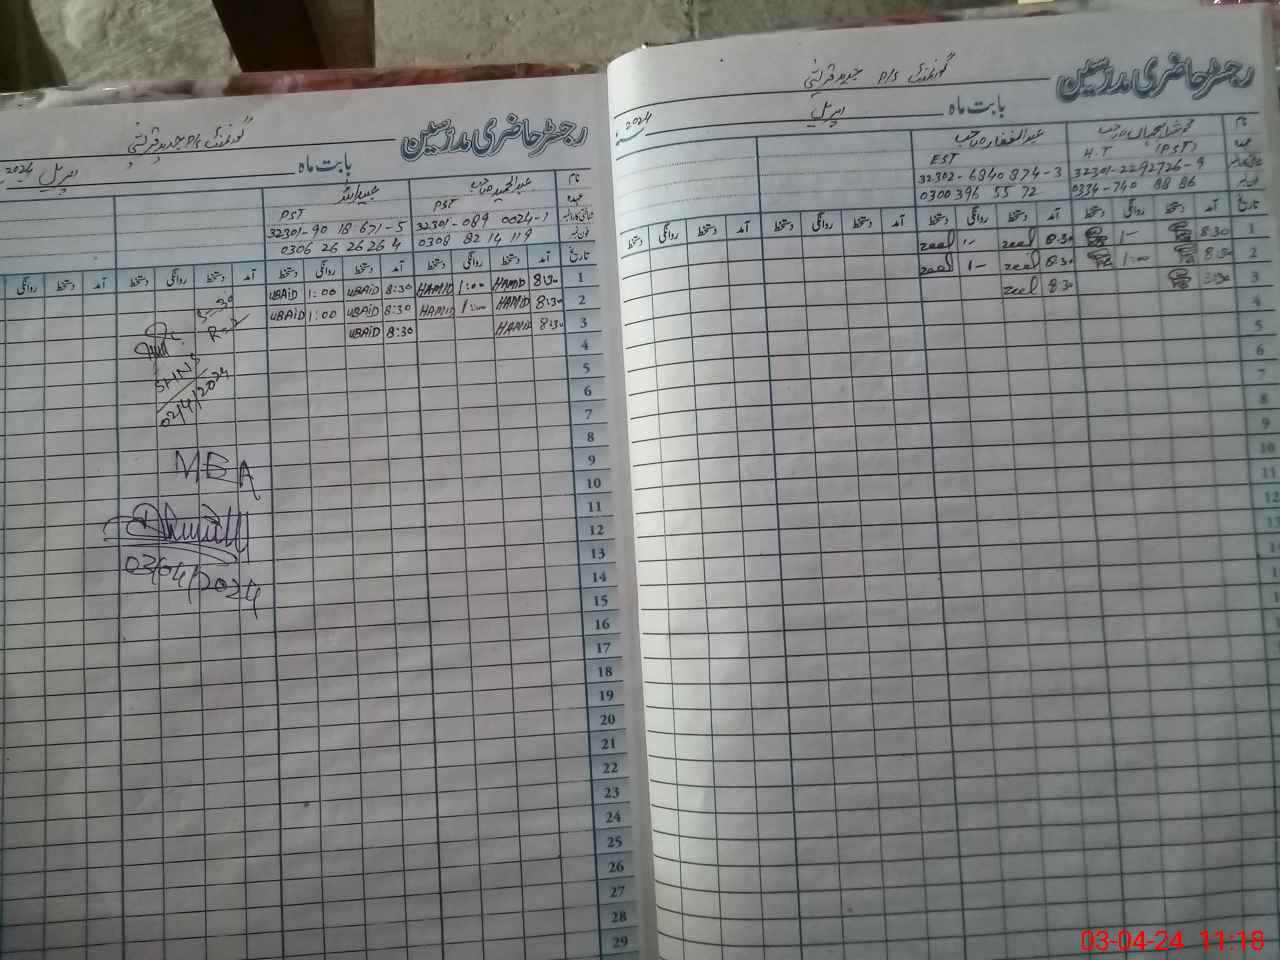 رجسٹر حاضری مدرسین
گورنمنٹ P/S جدید قریشی
بابت ماہ اپریل 2024
نام
عہدہ
شناختی کارڈ نمبر
فون نمبر
H.T (PST)
32301-2292726-9
0334-740 88 86
عبدالغفار صاحب
EST
32302-6840874-3
0300 396 55 72
تاریخ آمد دستخط روانگی دستخط آمد دستخط روانگی دستخط آمد دستخط روانگی دستخط آمد دستخط روانگی دستخط
1 8:30 1- 8:30 zeel 1- zeel
2 8:30 1:00 8:30 zeel 1- zeel
3 8:30 8:30 zeel
4
5
6
7
8
9
10
11
12
رجسٹر حاضری مدرسین
گورنمنٹ P/S جدید قریشی
بابت ماہ اپریل 2024
نام
عہدہ
شناختی کارڈ نمبر
فون نمبر
عبدالحمید صاحب
PST
32301-089 0024-1
0308 82 14 119
عبیداللہ
PST
32301-90 18 671-5
0306 26 26 26 4
تاریخ آمد دستخط روانگی دستخط آمد دستخط روانگی دستخط آمد دستخط روانگی دستخط
1 8:30 HAMID 1:00 HAMID 8:30 UBAID 1:00 UBAID
2 8:30 HAMID 1:00 HAMID 8:30 UBAID 1:00 UBAID
3 8:30 HAMID 8:30 UBAID
4
5
6
7
8
9
10
11
12
13
14
15
16
17
18
19
20
21
22
23
24
25
26
27
28
29
S-30
R-2
SHNS
02/4/2024
MEA
03/04/2024
03-04-24 11:18